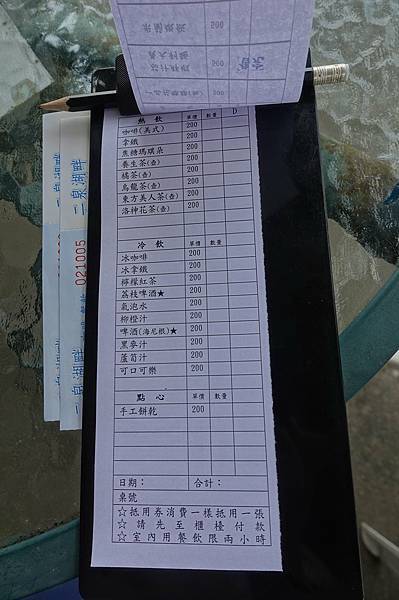 500
500
500
熱飲 單價 數量 D
咖啡(美式) 200
拿鐵 200
焦糖瑪琪朵 200
養生茶(壺) 200
橘茶(壺) 200
烏龍茶(壺) 200
東方美人茶(壺) 200
洛神花茶(壺) 200
冷飲 單價 數量
冰咖啡 200
冰拿鐵 200
檸檬紅茶 200
荔枝啤酒★ 200
氣泡水 200
柳橙汁 200
啤酒(海尼根)★ 200
黑麥汁 200
蘆筍汁 200
可口可樂 200
點心 單價 數量
手工餅乾 200
日期： 合計：
桌號
☆抵用券消費一樣抵用一張
☆請先至櫃檯付款
☆室內用餐飲限兩小時
二泉湖畔
021005
二泉湖畔